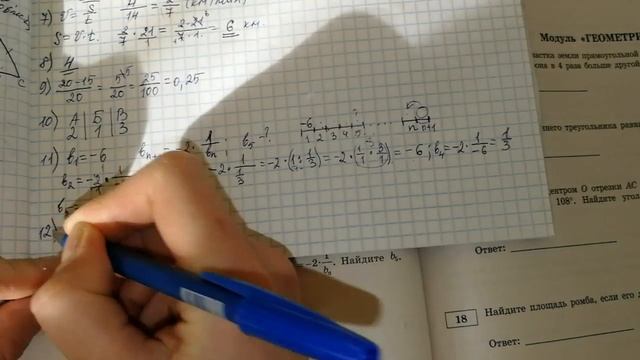 7) V = S/t 4/14 = 2/7 (км/мин)
S = V·t. 2/7 · 21/1 = 2·21/7·1 = 6 км.
8) 4
9) 20-15/20 = 5/20 = 25/100 = 0,25
10) А | Б | В
2 | 1 | 3
11) b₁ = -6 bₙ₊₁ = -2· 1/bₙ ; b₅ - ?
-6
1 2 3 4 5 n n+1
b₂ = -2 · 1 -2· 1/(1/3) = -2·(1 : 1/3) = -2·(1/1 · 3/1) = -6 ; b₄ = -2· 1/-6 = 1/3
12)
Модуль «ГЕОМЕТРИ
астка земли прямоугольной
она в 4 раза больше другой
ннего треугольника равни
центром O отрезки AC
108°. Найдите угол
Ответ:
= -2· 1/bₙ. Найдите b₅.
18 Найдите площадь ромба, если его д
Ответ: